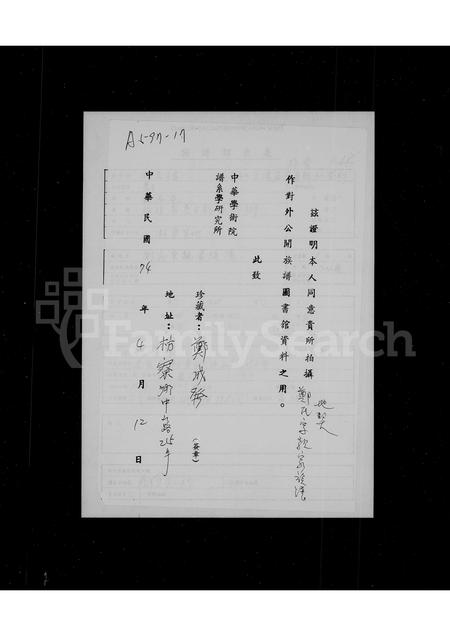 A5-97-17
茲證明本人同意貴所拍攝鄭氏字
作對外公開族譜圖書館資料之用。
此致
中華學術院
譜系學研究所
珍藏者：鄭成發（簽章）
地址：枋寮鄉中山路215号
中華民國74年4月12日
FamilySearch